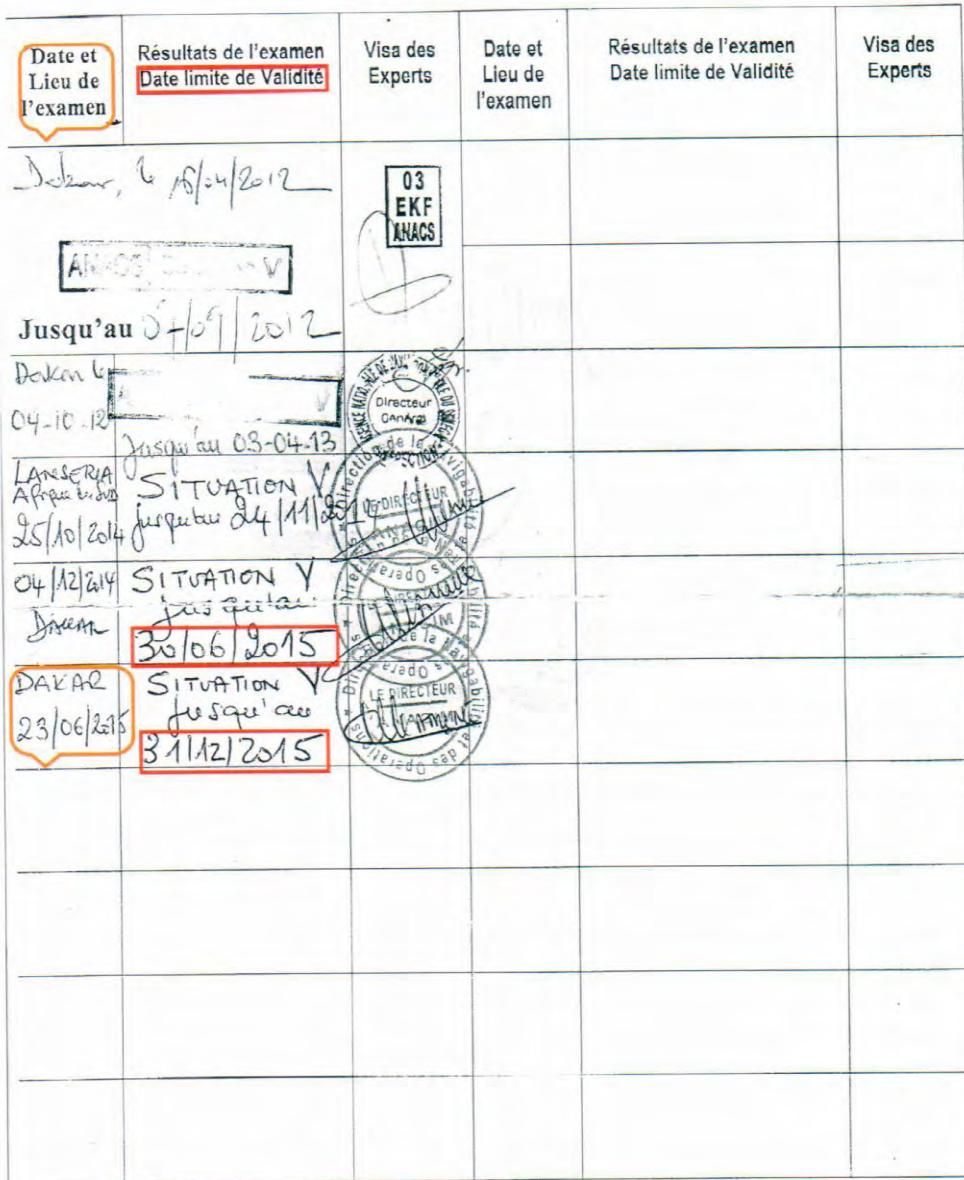 Date et
Lieu de
l'examen
Résultats de l'examen
Date limite de Validité
Visa des
Experts
Date et
Lieu de
l'examen
Résultats de l'examen
Date limite de Validité
Visa des
Experts
Dakar, le /04/2012
03
EKF
ANACS
ANACS V
Jusqu'au /09/2012
Dakar le
04-10-12
V
Jusqu'au 03-04-13
Directeur
LANSERIA
Afrique du Sud
25/10/2014
SITUATION V
jusqu'au 24/11/2014
LE DIRECTEUR
04/12/2014
DAKAR
SITUATION V
jusqu'au
30/06/2015
DAKAR
23/06/2015
SITUATION V
jusqu'au
31/12/2015
Direction de la Navigabilité et des Operations
LE DIRECTEUR